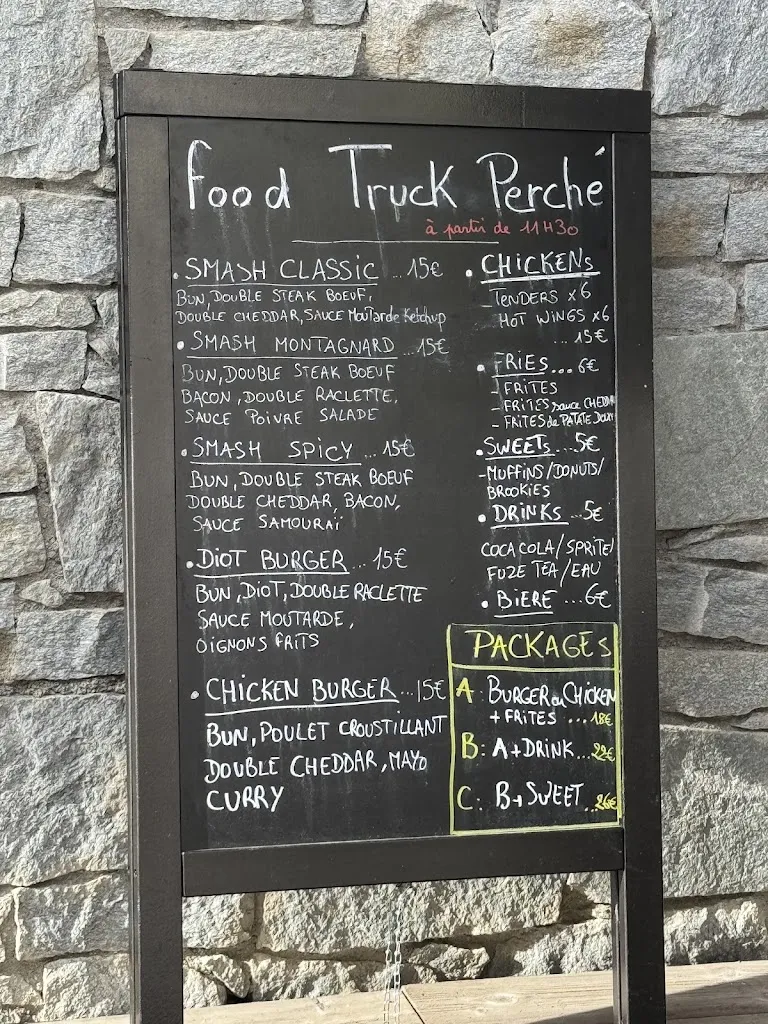 food Truck Perché
à partir de 11H30
. SMASH CLASSIC ... 15€
BUN, DOUBLE STEAK BOEUF,
DOUBLE CHEDDAR, SAUCE Moutarde Ketchup
. SMASH MONTAGNARD ... 15€
BUN, DOUBLE STEAK BOEUF
BACON, DOUBLE RACLETTE,
SAUCE POIVRE SALADE
. SMASH SPICY ... 15€
BUN, DOUBLE STEAK BOEUF
DOUBLE CHEDDAR, BACON,
SAUCE SAMOURAÏ
. DIOT BURGER ... 15€
BUN, DIOT, DOUBLE RACLETTE
SAUCE MOUTARDE,
OIGNONS FRITS
. CHICKEN BURGER ... 15€
BUN, POULET CROUSTILLANT
DOUBLE CHEDDAR, MAYO
CURRY
. CHICKENS
- TENDERS x6
HOT WINGS x6
... 15€
. FRIES ... 6€
- FRITES
- FRITES sauce CHEDDAR
- FRITES de PATATE DOUCE
. SWEETS ... 5€
- MUFFINS / DONUTS /
BROOKIES
. DRINKS ... 5€
COCA COLA / SPRITE /
FUZE TEA / EAU
. BIERE ... 6€
PACKAGES
A : BURGER ou CHICKEN
+ FRITES ... 18€
B : A + DRINK ... 22€
C : B + SWEET ... 26€